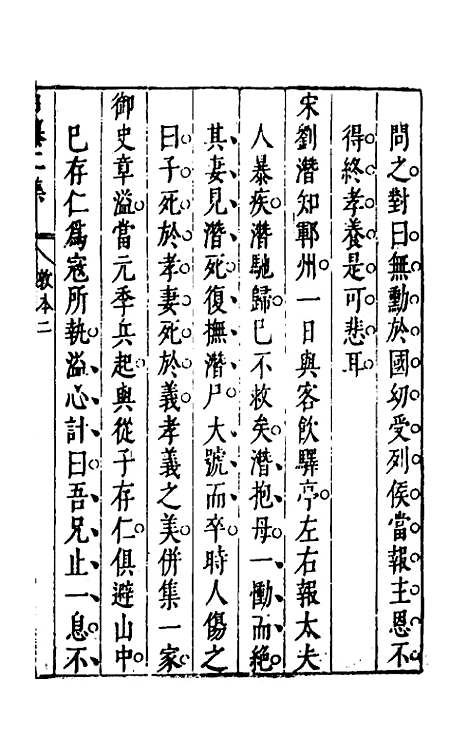 問之對曰無勳於國幼受列侯當報主恩不
得終孝養是可悲耳
宋劉潛知鄆州一日與客飲驛亭左右報太夫
人暴疾潛馳歸已不救矣潛抱母一慟而絕
其妻見潛死復撫潛尸大號而卒時人傷之
曰子死於孝妻死於義孝義之美併集一家
御史章溢當元季兵起與從子存仁俱避山中
已存仁為寇所執溢心計曰吾兄止一息不
二集
教本二